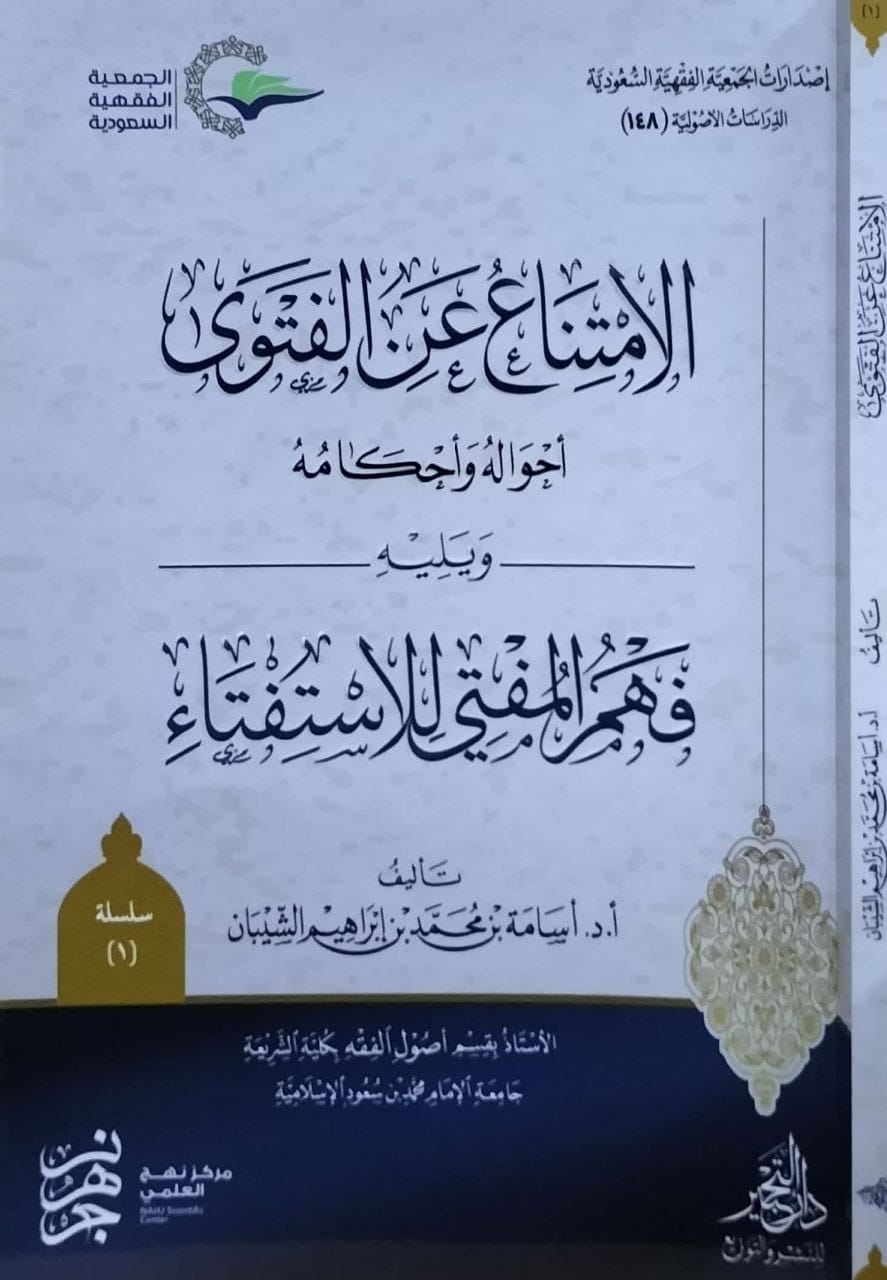 إصْدَارَاتُ الجَمْعِيَّةِ الفِقْهِيَّةِ السُّعُودِيَّةِ
الدِّرَاسَاتُ الأُصُولِيَّة (١٤٨)
الجمعية
الفقهية
السعودية
الامْتِنَاعُ عَنِ الفَتْوَى
أَحْوَالُهُ وَأَحْكَامُهُ
وَيَلِيهِ
فَهْمُ المُفْتِي لِلِاسْتِفْتَاءِ
تَأليفُ
أ.د. أُسَامَة بْن مُحَمَّد بْن إِبْرَاهِيم الشَّيْبَان
سلسلة
(١)
الأُسْتَاذُ بِقِسْمِ أُصُولِ الفِقْهِ بِكُلِّيَّةِ الشَّرِيعَةِ
جَامِعَةِ الإِمَامِ مُحَمَّد بْن سُعُود الإِسْلَامِيَّةِ
نهج
مركز نهج
العلمي
NAHJ Scientific
Center
دار التحبير
للنشر والتوزيع
(١)
الامْتِنَاعُ عَنِ الفَتْوَى
تَأليفُ
أ.د. أُسَامَة بْن مُحَمَّد بْن إِبْرَاهِيم الشَّيْبَان